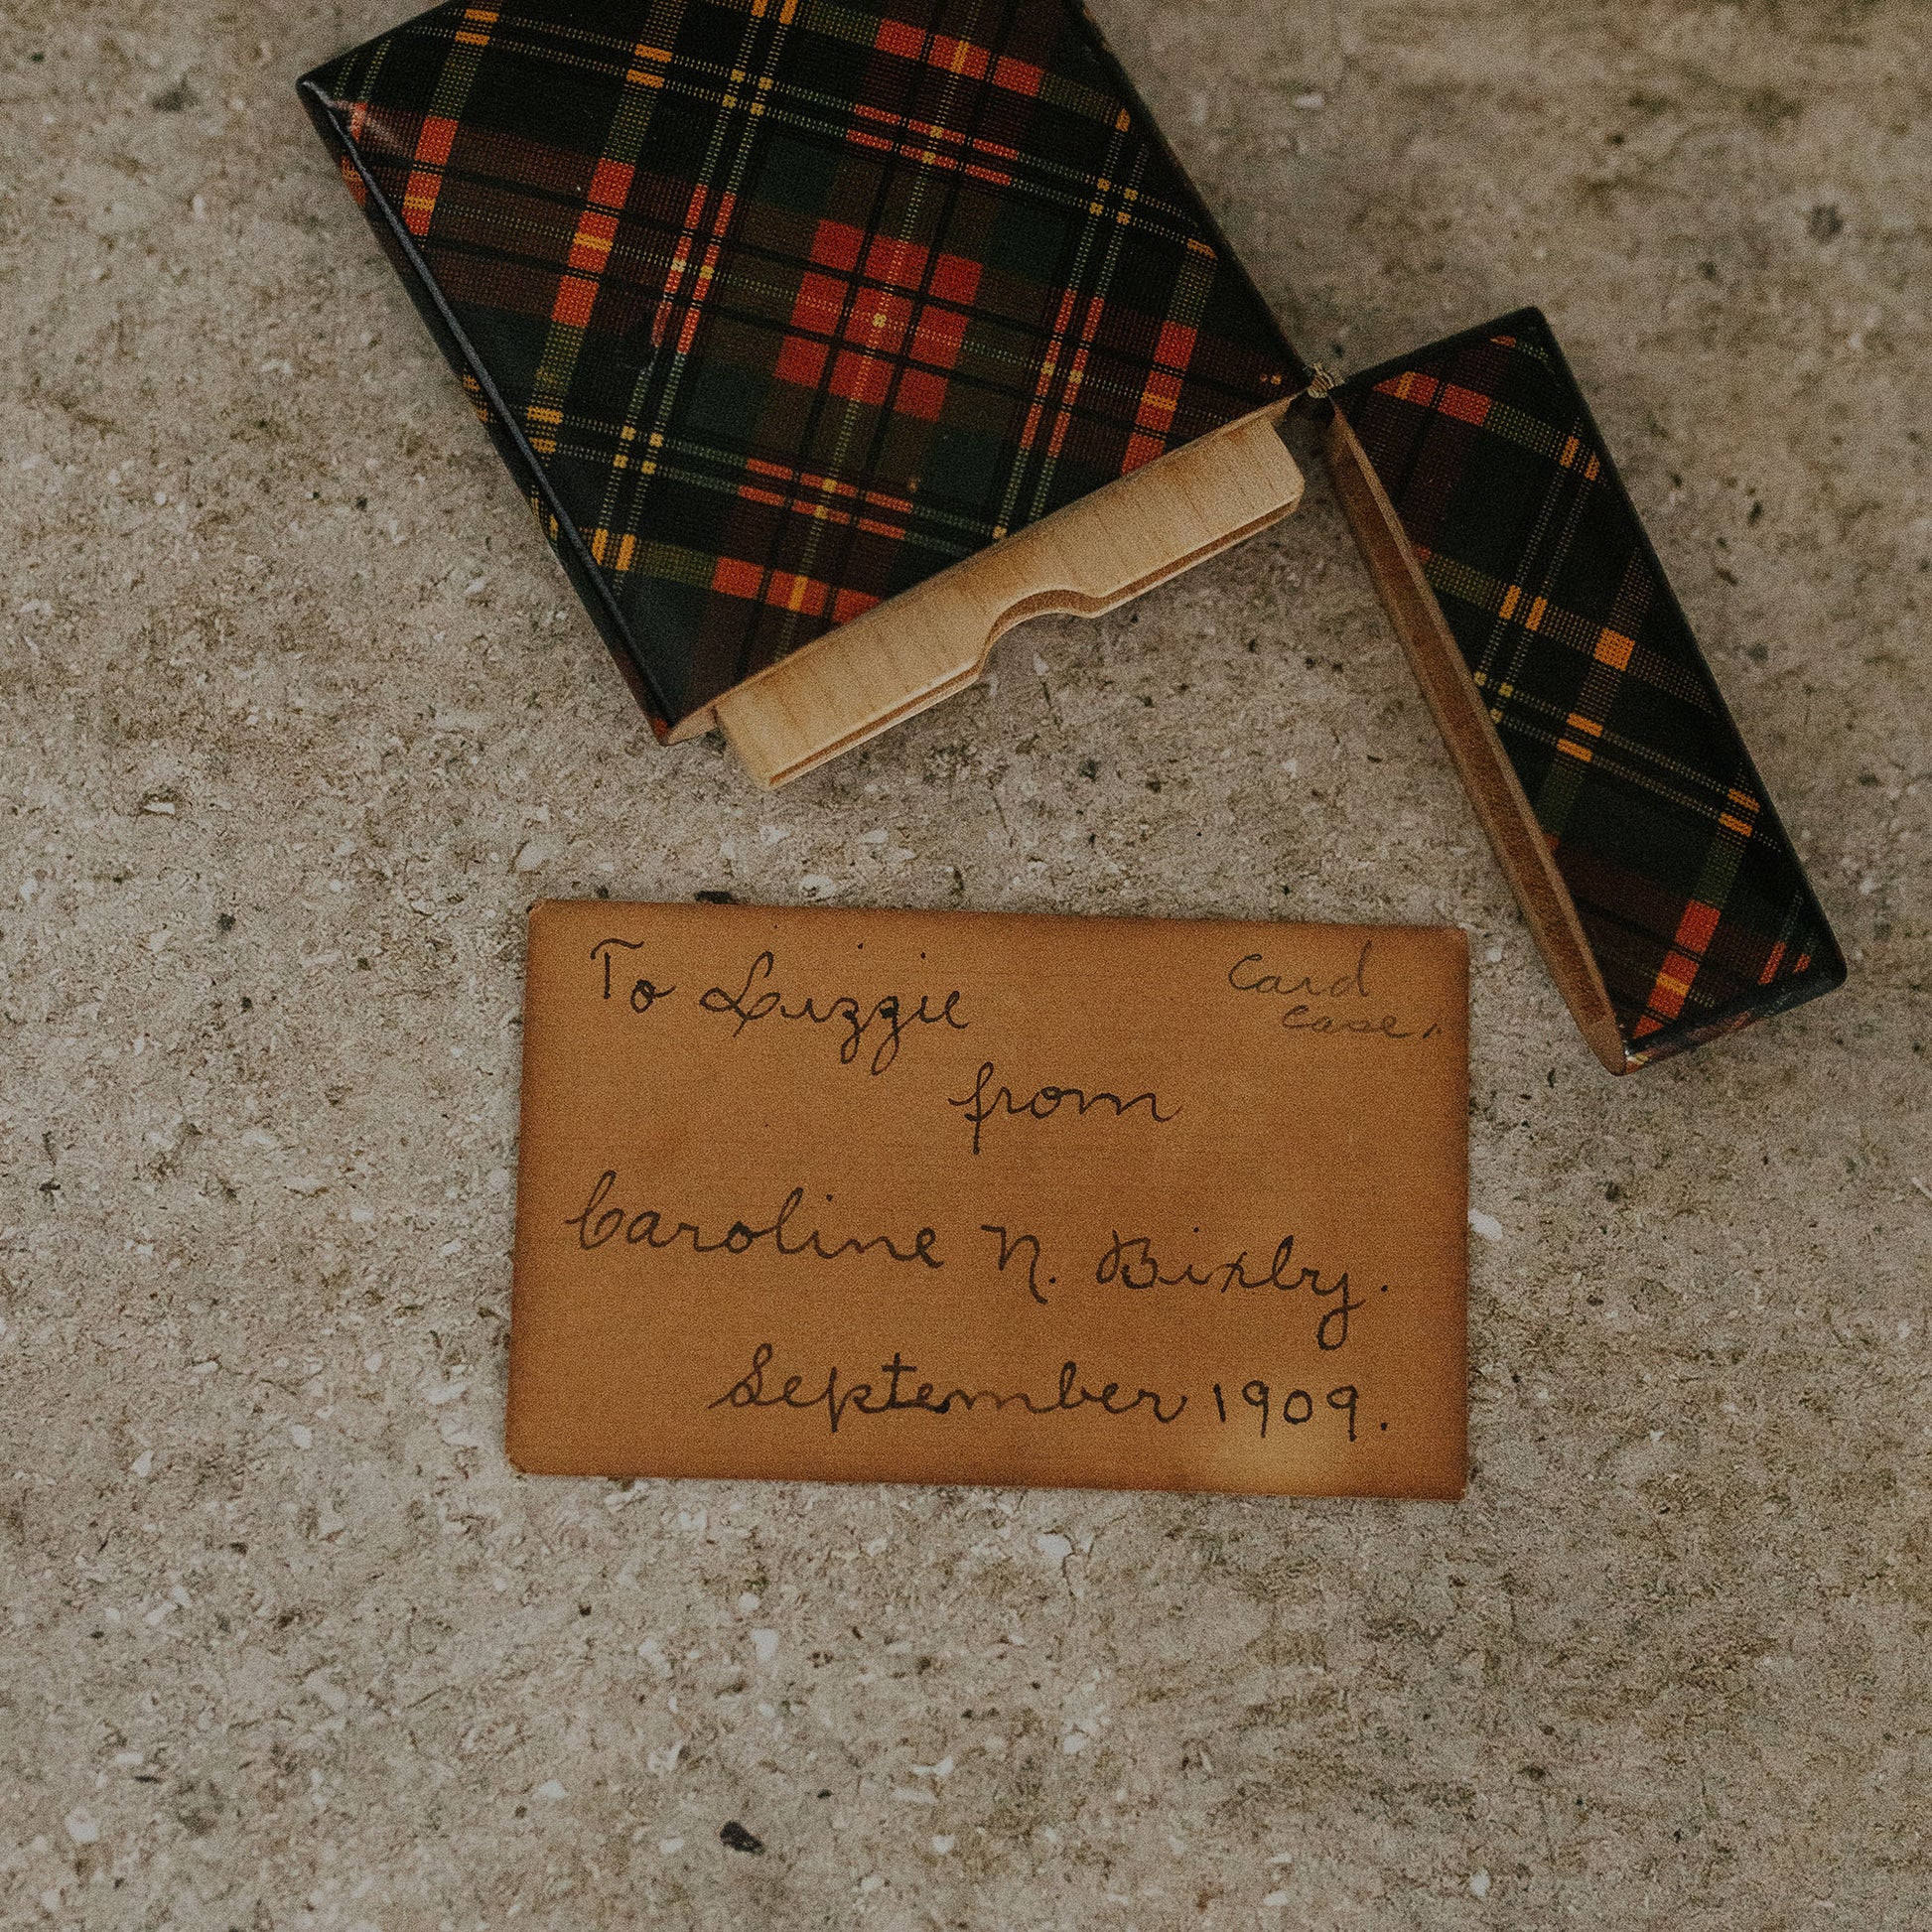 To Lizzie
Card
case.
from
Caroline N. Bixby.
September 1909.